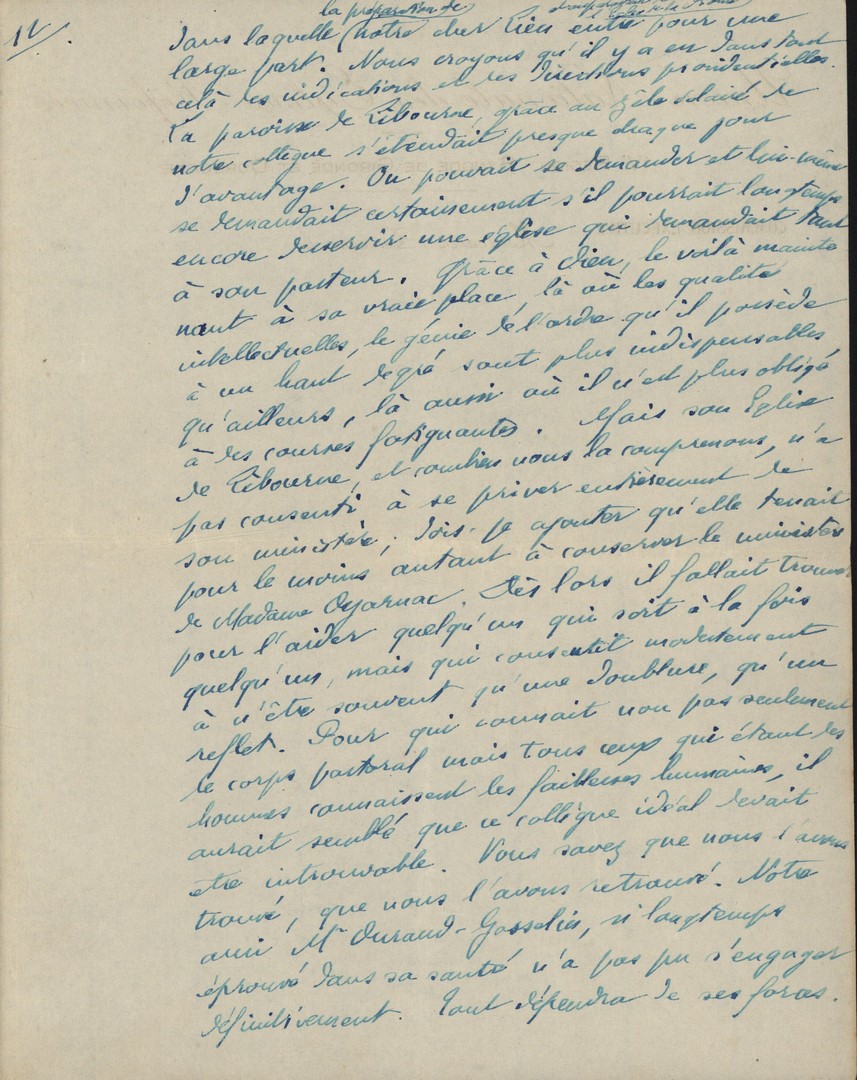 12/
la préparation de
dans laquelle (notre cher lien entre pour une
large part. Nous croyons qu'il y a eu dans tout
celà des indications et des directions providentielles.
La paroisse de Libourne, grâce au zèle éclairé de
notre collègue s'étendait presque chaque jour
d'avantage. On pouvait se demander et lui-même
se demandait certainement s'il pourrait longtemps
encore desservir une église qui demandait tant
à son pasteur. Grâce à Dieu, le voilà mainte
nant à sa vraie place, là où les qualités
intellectuelles, le génie de l'ordre qu'il possède
à un haut degré sont plus indispensables
qu'ailleurs, là aussi où il n'est plus obligé
à des courses fatiguantes. Mais son Eglise
de Libourne, et combien nous la comprenons, n'a
pas consenti à se priver entièrement de
son ministère; dois-je ajouter qu'elle tenait
pour le moins autant à conserver le ministère
de Madame Oyarnac. Dès lors il fallait trouver
pour l'aider quelqu'un qui soit à la fois
quelqu'un, mais qui consentit modestement
à n'être souvent qu'une doublure, qu'un
reflet. Pour qui connait non pas seulement
le corps pastoral mais tous ceux qui étant des
hommes connaissent les faiblesses humaines, il
aurait semblé que ce collègue idéal devait
être introuvable. Vous savez que nous l'avons
trouvé, que nous l'avons retrouvé. Notre
ami Mr Durand-Gosselin, si longtemps
éprouvé dans sa santé n'a pas pu s'engager
définitivement. Tout dépendra de ses forces.